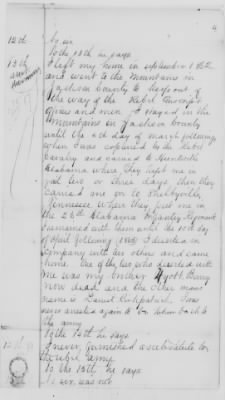 4
12th No sir
To the 13th he says
13th I left my home in september 1862
and went to the Mountains in
Jackson County to keep out of
the way of the Rebel
and men, I stayed in the
Mountains in Jackson County
until the 4th day of March following
when I was captured by the Rebel
Cavalry and carried to Huntsville
Alabama where they kept me in
jail two or three days, then they
carried me on to Shelbyville
Tennessee where they put me in
the 26th Alabama Infantry Regiment
I remained with them until the 10th day
of April following (1863) I deserted in
company with two others and came
home. One of the two who deserted with
me was my brother
now dead, and the other mans
name is Daniel Kirkpatrick. I was
never arrested again to be taken back to
the army.
To the 15th he says
I never furnished a substitute for
the rebel army.
To the 15th he says
No sir, was not